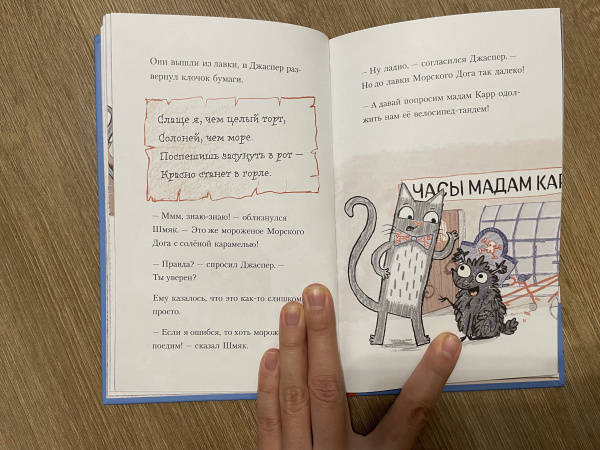 Они вышли из лавки, и Джаспер раз-
вернул клочок бумаги.
Слаще я, чем целый торт,
Солоней, чем море.
Поспешишь засунуть в рот —
Красно станет в горле.
— Ммм, знаю-знаю! — облизнулся
Шмяк. — Это же мороженое Морского
Дога с солёной карамелью!
— Правда? — спросил Джаспер. —
Ты уверен?
Ему казалось, что это как-то слишком
просто.
— Если я ошибся, то хоть морож
поедим! — сказал Шмяк.
— Ну ладно, — согласился Джаспер. —
Но до лавки Морского Дога так далеко!
— А давай попросим мадам Карр одол-
жить нам её велосипед-тандем!
ЧАСЫ МАДАМ КАР